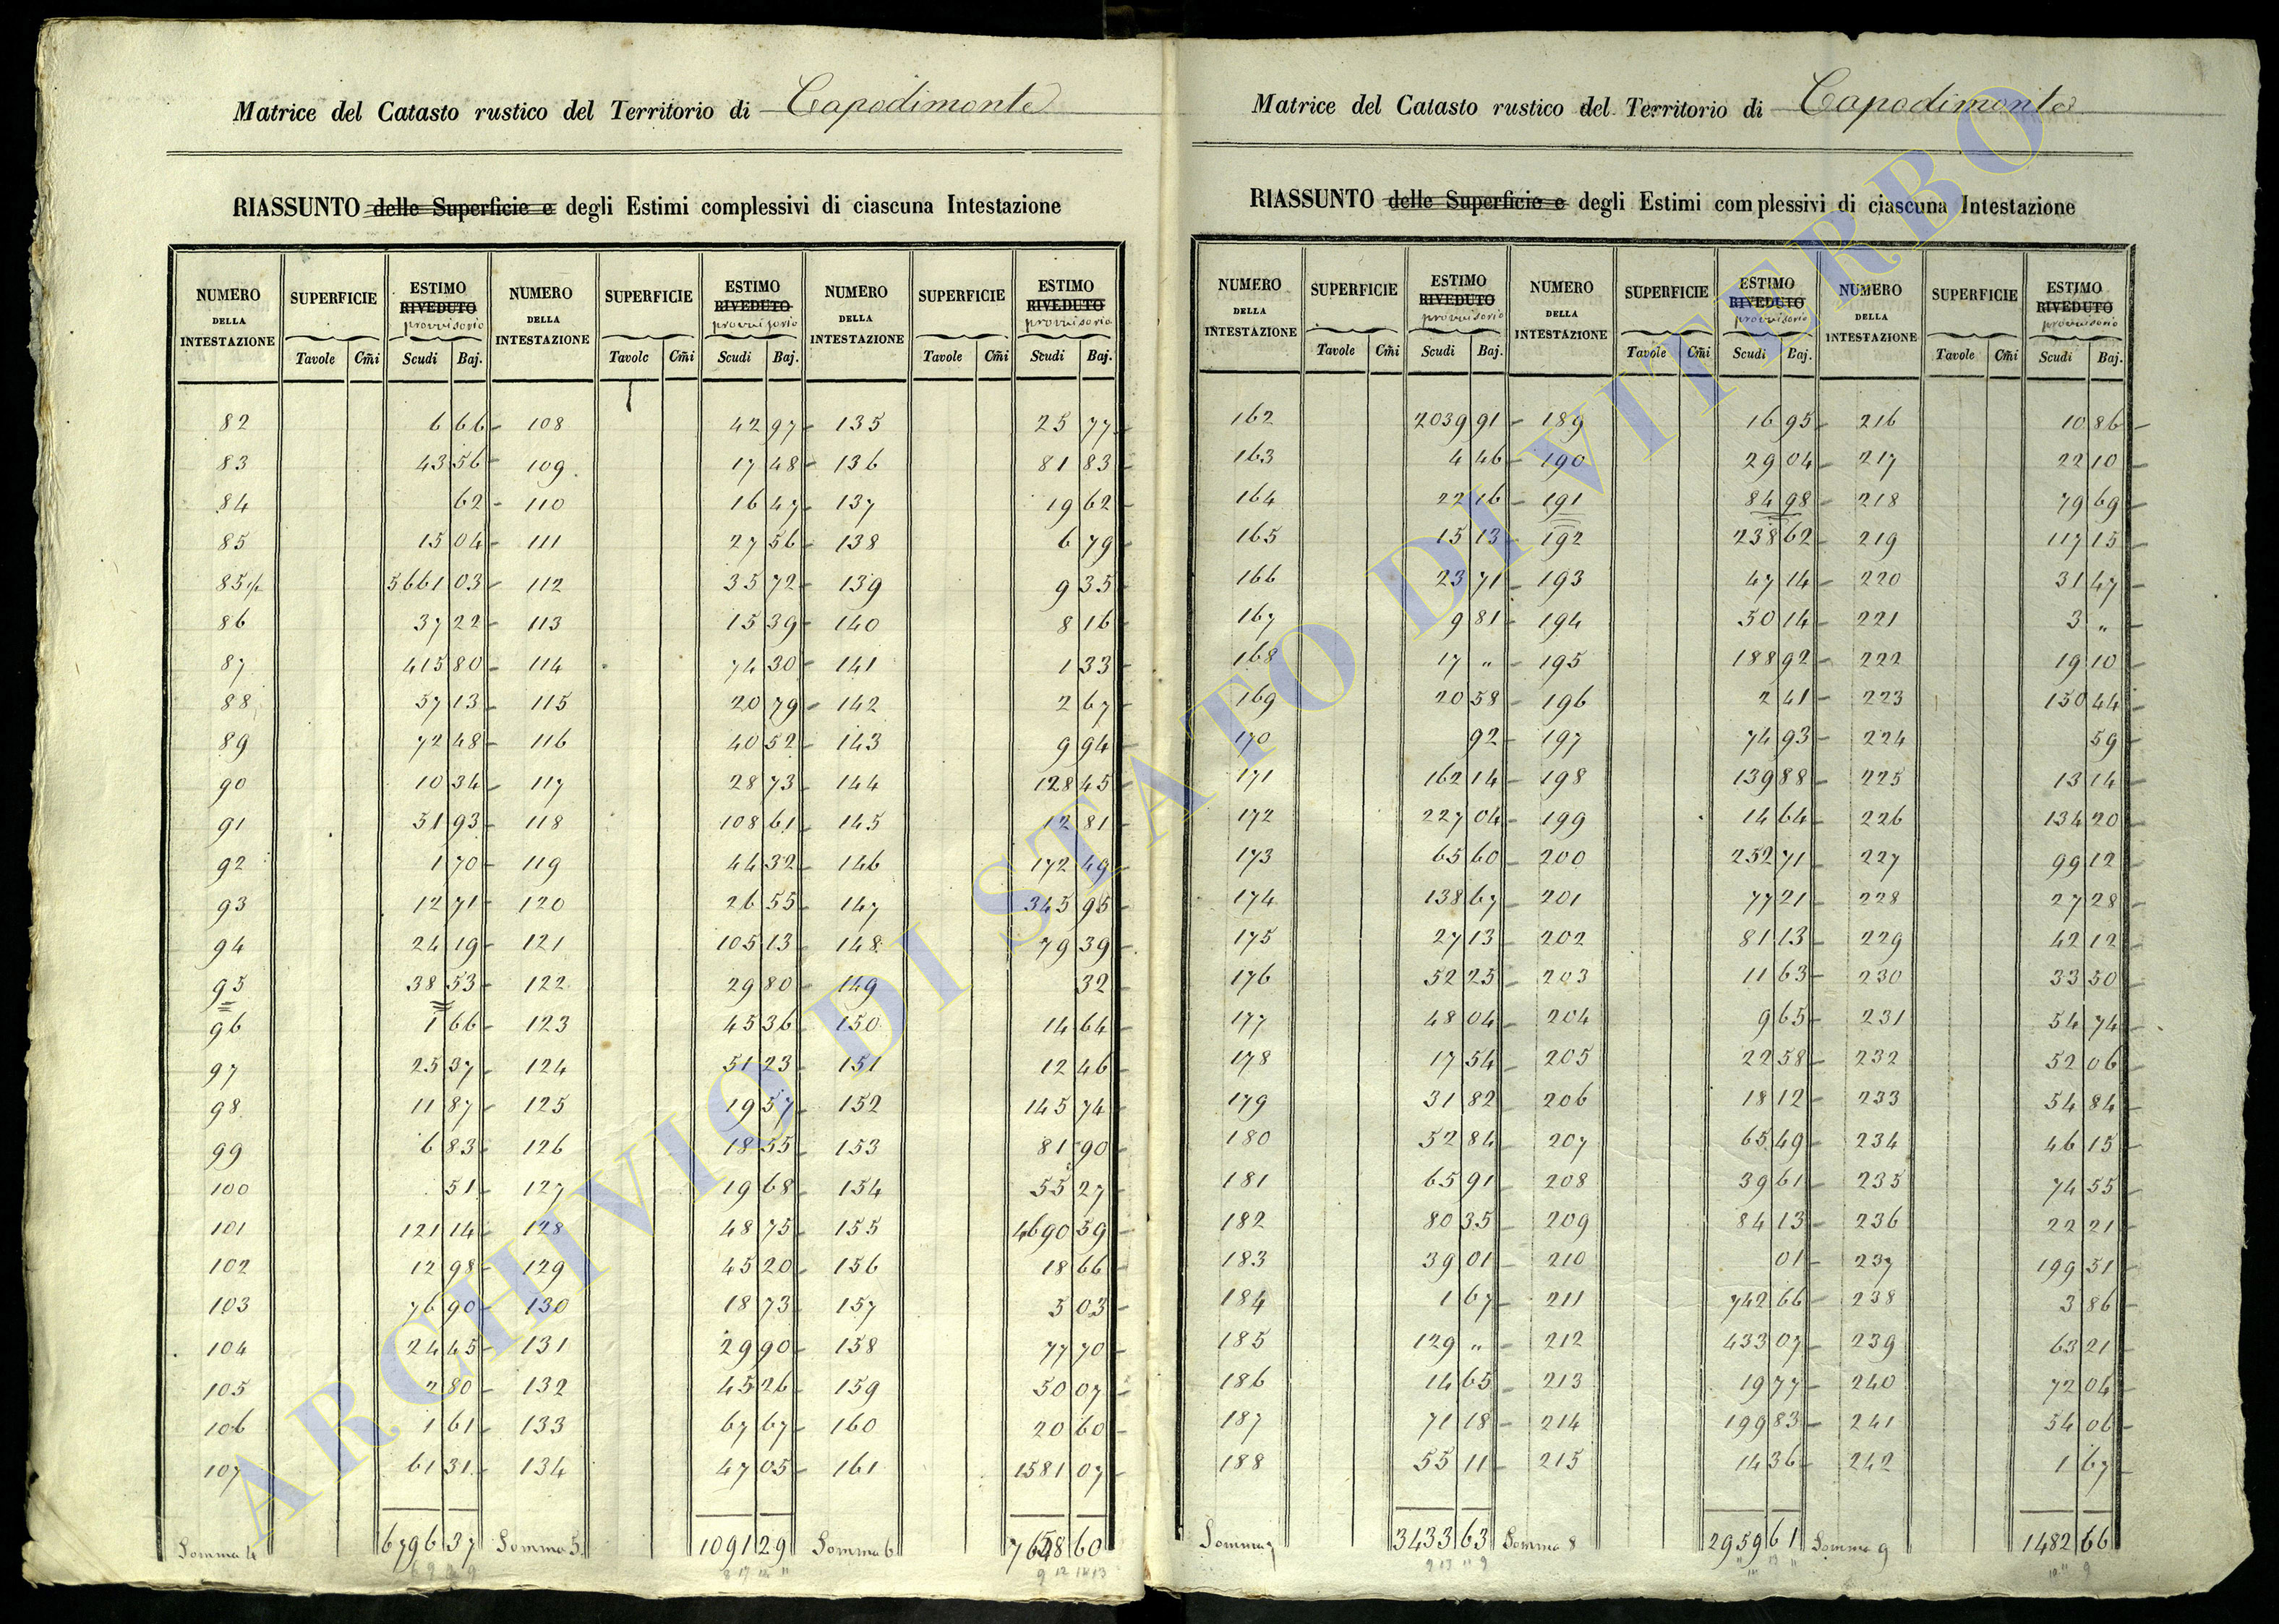 Matrice del Catasto rustico del Territorio di Capodimonte
RIASSUNTO delle Superficie e degli Estimi complessivi di ciascuna Intestazione
NUMERO DELLA INTESTAZIONE SUPERFICIE ESTIMO RIVEDUTO provvisorio NUMERO DELLA INTESTAZIONE SUPERFICIE ESTIMO RIVEDUTO provvisorio NUMERO DELLA INTESTAZIONE SUPERFICIE ESTIMO RIVEDUTO provvisorio
Tavole Cm̃i Scudi Baj. Tavole Cm̃i Scudi Baj. Tavole Cm̃i Scudi Baj.
82 6 66 108 42 97 135 25 77
83 43 56 109 17 48 136 81 83
84 62 110 16 47 137 19 62
85 15 04 111 27 56 138 6 79
85½ 5661 03 112 35 72 139 9 35
86 37 22 113 15 39 140 8 16
87 415 80 114 74 30 141 1 33
88 57 13 115 20 79 142 2 67
89 72 48 116 40 52 143 9 94
90 10 34 117 28 73 144 128 45
91 51 93 118 108 61 145 12 81
92 1 70 119 44 32 146 172 49
93 12 71 120 26 55 147 345 95
94 24 19 121 105 13 148 79 39
95 38 53 122 29 80 149 32
96 1 66 123 45 36 150 14 64
97 25 37 124 51 23 151 12 46
98 11 87 125 19 57 152 145 74
99 6 83 126 18 55 153 81 90
100 51 127 19 68 154 55 27
101 121 14 128 48 75 155 4690 59
102 12 98 129 45 20 156 18 66
103 76 90 130 18 73 157 5 03
104 24 45 131 29 90 158 77 70
105 2 80 132 45 26 159 50 07
106 1 61 133 67 67 160 20 60
107 61 31 134 47 05 161 1581 07
Somma 4 6796 37 Somma 5 1091 29 Somma 6 7658 60
Matrice del Catasto rustico del Territorio di Capodimonte
RIASSUNTO delle Superficie e degli Estimi complessivi di ciascuna Intestazione
NUMERO DELLA INTESTAZIONE SUPERFICIE ESTIMO RIVEDUTO provvisorio NUMERO DELLA INTESTAZIONE SUPERFICIE ESTIMO RIVEDUTO provvisorio NUMERO DELLA INTESTAZIONE SUPERFICIE ESTIMO RIVEDUTO provvisorio
Tavole Cm̃i Scudi Baj. Tavole Cm̃i Scudi Baj. Tavole Cm̃i Scudi Baj.
162 2039 91 189 16 95 216 10 86
163 4 46 190 29 04 217 22 10
164 22 16 191 84 98 218 79 69
165 15 13 192 238 62 219 117 15
166 23 71 193 47 14 220 31 47
167 9 81 194 50 14 221 3 "
168 17 " 195 188 92 222 19 10
169 20 58 196 2 41 223 150 44
170 92 197 74 93 224 59
171 162 14 198 139 88 225 13 14
172 227 04 199 14 64 226 134 20
173 65 60 200 252 71 227 99 12
174 138 67 201 77 21 228 27 28
175 27 13 202 81 13 229 42 12
176 52 25 203 11 63 230 33 50
177 48 04 204 9 65 231 54 74
178 17 54 205 22 58 232 52 06
179 31 82 206 18 12 233 54 84
180 52 84 207 65 49 234 46 15
181 65 91 208 39 61 235 74 55
182 80 35 209 84 13 236 22 21
183 39 01 210 01 237 199 51
184 1 67 211 742 66 238 3 86
185 129 " 212 433 07 239 63 21
186 14 65 213 19 77 240 72 04
187 71 18 214 199 83 241 54 06
188 55 11 215 14 36 242 1 67
Somma 7 3433 63 Somma 8 2959 61 Somma 9 1482 66
ARCHIVIO DI STATO DI VITERBO